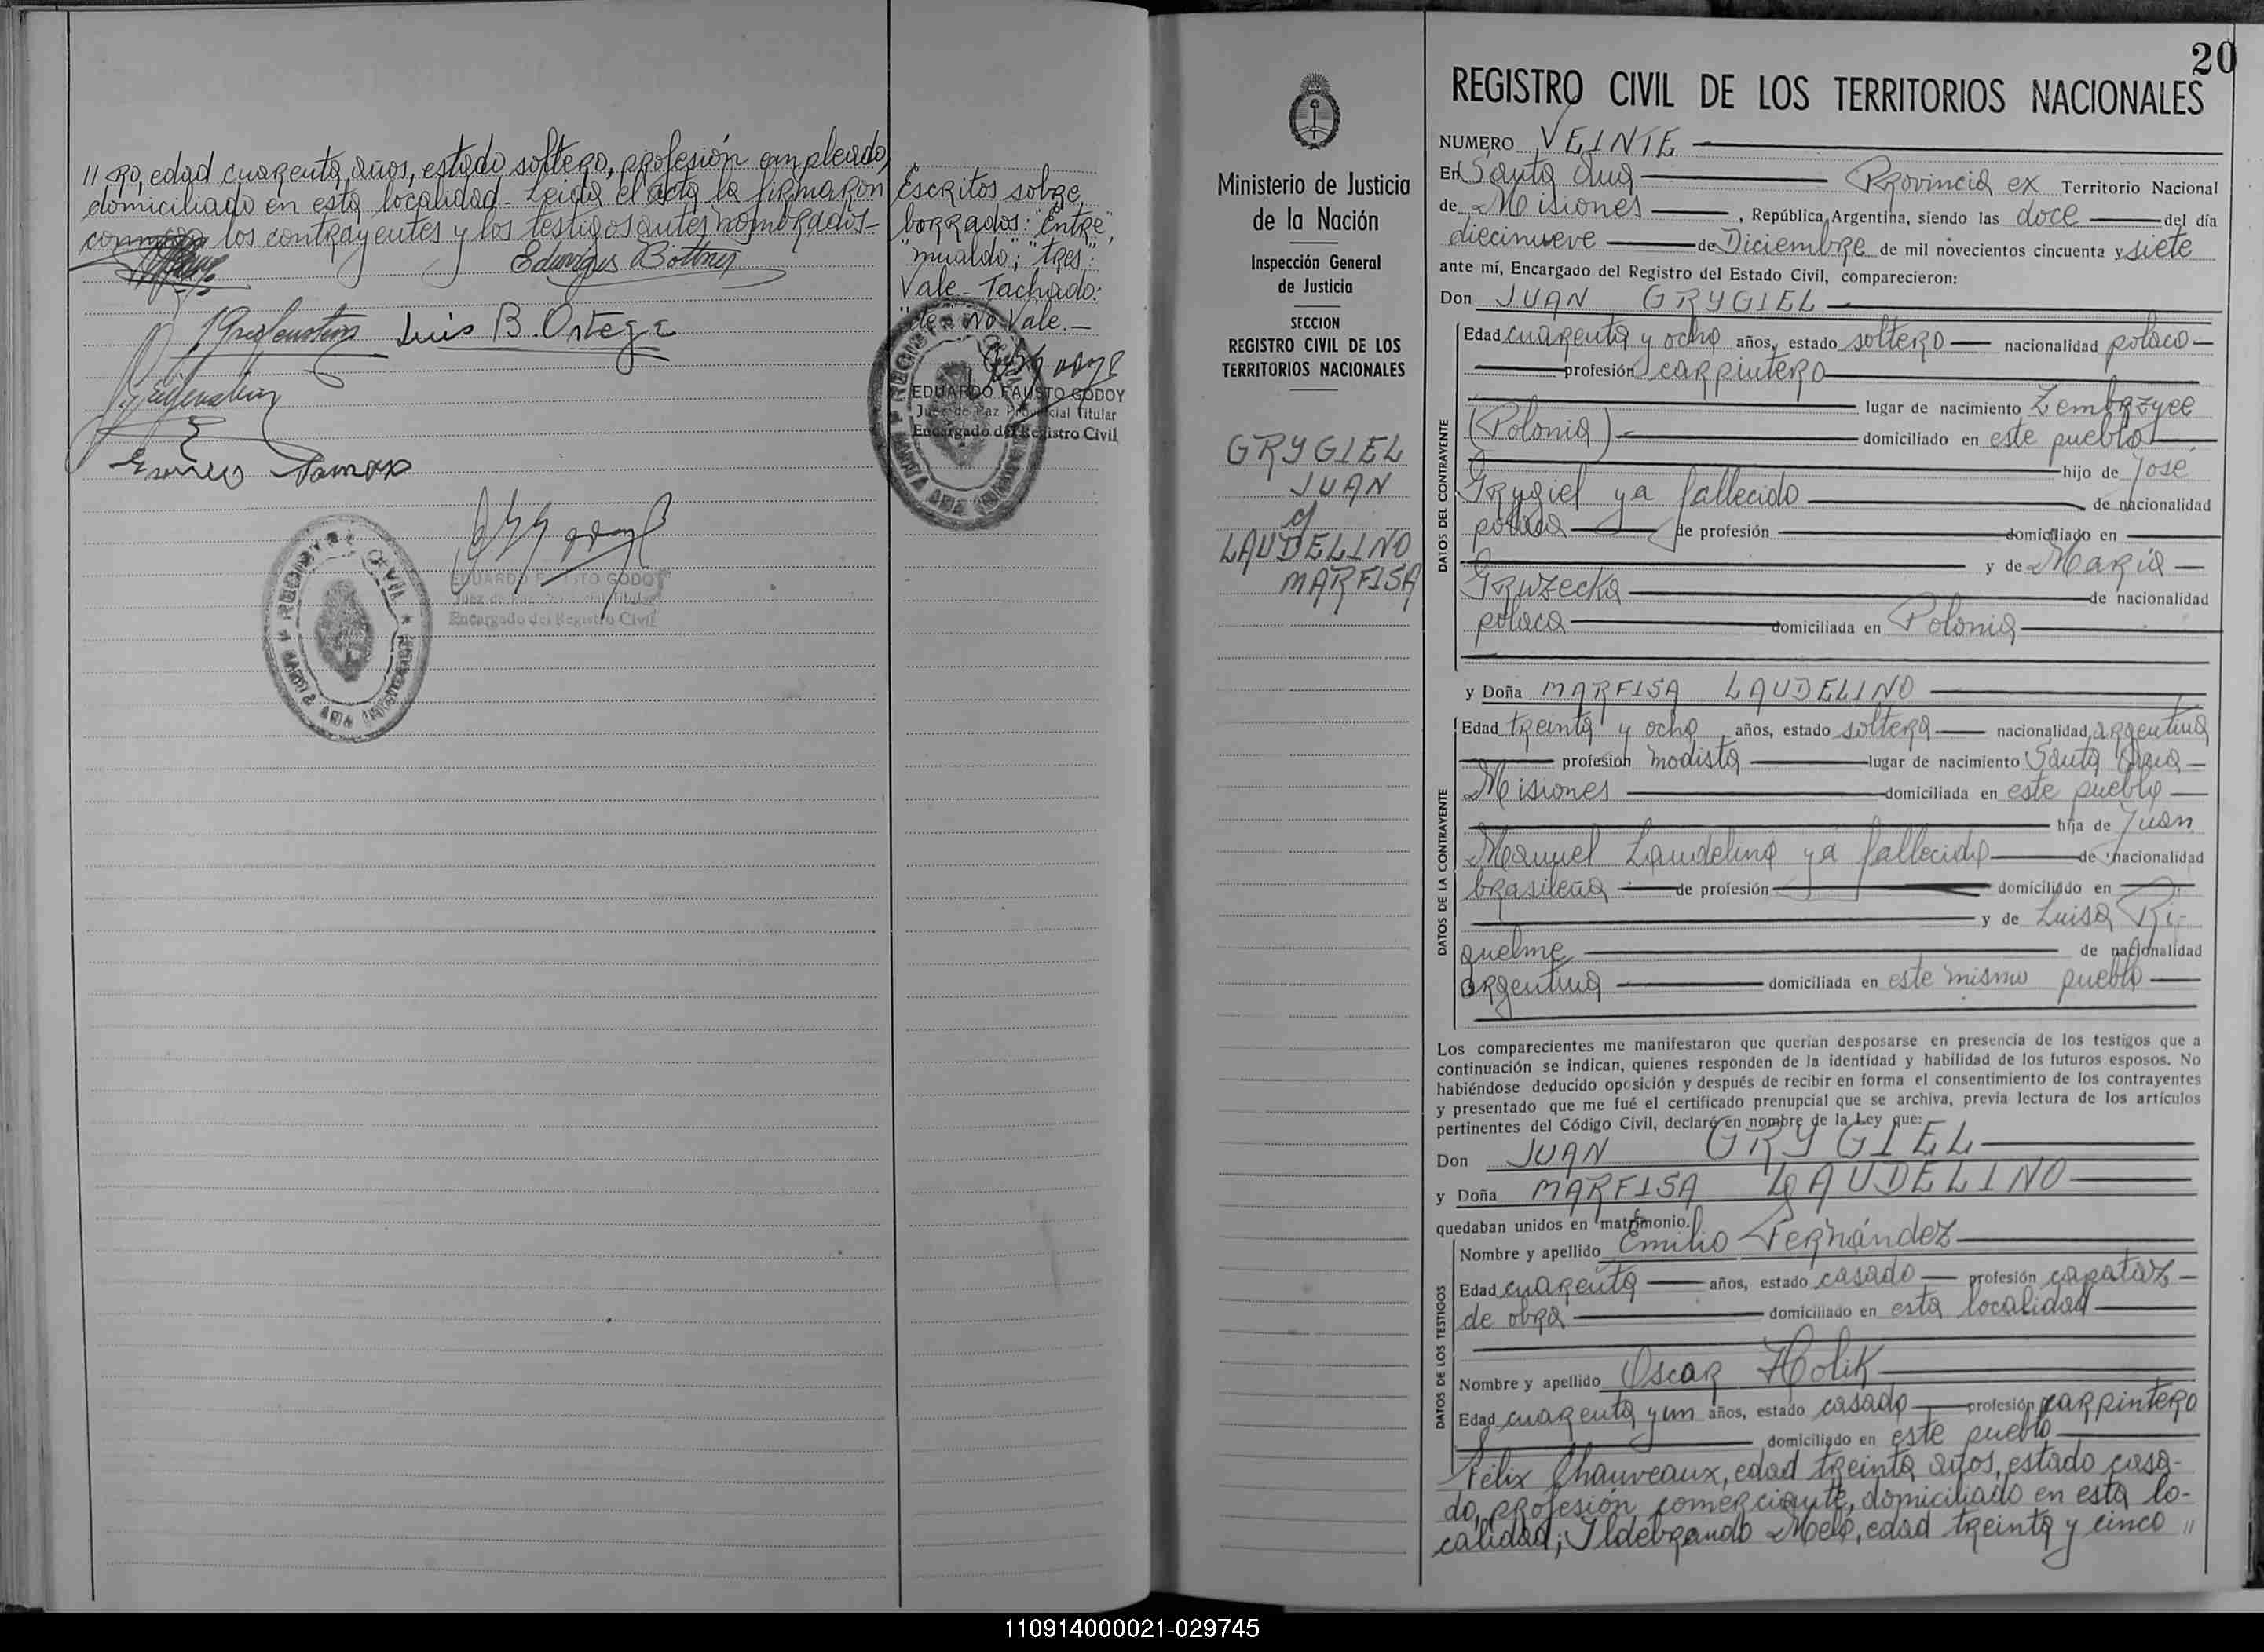 11 ro, edad cuarenta años, estado soltero, profesión empleado,
domiciliado en esta localidad - Leida el acta la firmaron
los contrayentes y los testigos antes nombrados -
Luis B. Ortega
EDUARDO FAUSTO GODOY
Juez de Paz Provincial Titular
Encargado del Registro Civil
REGISTRO CIVIL
Escritos sobre
borrados: "Entre",
"mualdo"; "tres":
Vale - Tachado:
No Vale. -
EDUARDO FAUSTO GODOY
Juez de Paz Provincial Titular
Encargado del Registro Civil
Ministerio de Justicia
de la Nación
Inspección General
de Justicia
SECCION
REGISTRO CIVIL DE LOS
TERRITORIOS NACIONALES
GRYGIEL
JUAN
y
LAUDELINO
MARFISA
20
REGISTRO CIVIL DE LOS TERRITORIOS NACIONALES
NUMERO VEINTE
En Santa Ana Provincia ex Territorio Nacional
de Misiones, República Argentina, siendo las doce del día
diecinueve de Diciembre de mil novecientos cincuenta y siete
ante mí, Encargado del Registro del Estado Civil, comparecieron:
Don JUAN GRYGIEL
DATOS DEL CONTRAYENTE
Edad cuarenta y ocho años, estado soltero nacionalidad polaco
profesión carpintero
lugar de nacimiento
(Polonia) domiciliado en este pueblo
hijo de José
Grygiel ya fallecido de nacionalidad
polaca de profesión domiciliado en
y de María
Gruzecka de nacionalidad
polaca domiciliada en Polonia
y Doña MARFISA LAUDELINO
DATOS DE LA CONTRAYENTE
Edad treinta y ocho años, estado soltera nacionalidad argentina
profesion modista lugar de nacimiento Santa Ana
Misiones domiciliada en este pueblo
hija de Juan
Manuel Laudelino ya fallecido de nacionalidad
brasileña de profesión domiciliado en
y de Luisa Ri-
quelme de nacionalidad
argentina domiciliada en este mismo pueblo
Los comparecientes me manifestaron que querían desposarse en presencia de los testigos que a
continuación se indican, quienes responden de la identidad y habilidad de los futuros esposos. No
habiéndose deducido oposición y después de recibir en forma el consentimiento de los contrayentes
y presentado que me fué el certificado prenupcial que se archiva, previa lectura de los artículos
pertinentes del Código Civil, declaré en nombre de la Ley que:
Don JUAN GRYGIEL
y Doña MARFISA LAUDELINO
quedaban unidos en matrimonio.
DATOS DE LOS TESTIGOS
Nombre y apellido Emilio Fernández
Edad cuarenta años, estado casado profesión capataz
de obra domiciliado en esta localidad
Nombre y apellido Oscar Holik
Edad cuarenta y un años, estado casado profesión carpintero
domiciliado en este pueblo
Félix Chauveaux, edad treinta años, estado casa-
do, profesión comerciante, domiciliado en esta lo-
calidad; Ildebrando Melo, edad treinta y cinco //
110914000021-029745